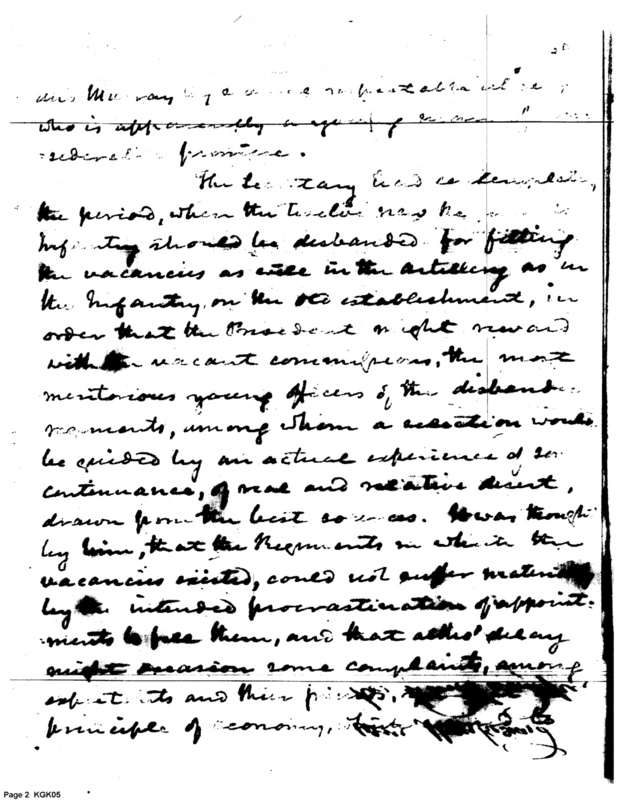 Murray respectable
who is apparently a young man
federal province.
The Secretary had contemplated,
the period, when the twelve new
Infantry should be disbanded for filling
the vacancies as well in the artillery as in
the Infantry, on the old establishment, in
order that the President might reward
with the vacant commissions, the most
meritorious young officers of the disbanded
regiments, among whom a selection would
be guided by an actual experience of
continuance, of real and relative desert,
drawn from the best sources. It was thought
by him, that the Regiments in which the
vacancies existed, could not suffer materially
by the intended procrastination of appoint-
ments to fill them, and that altho' delay
might occasion some complaints, among
expectants and their friends,
principle of economy,
Page 2 KGK05